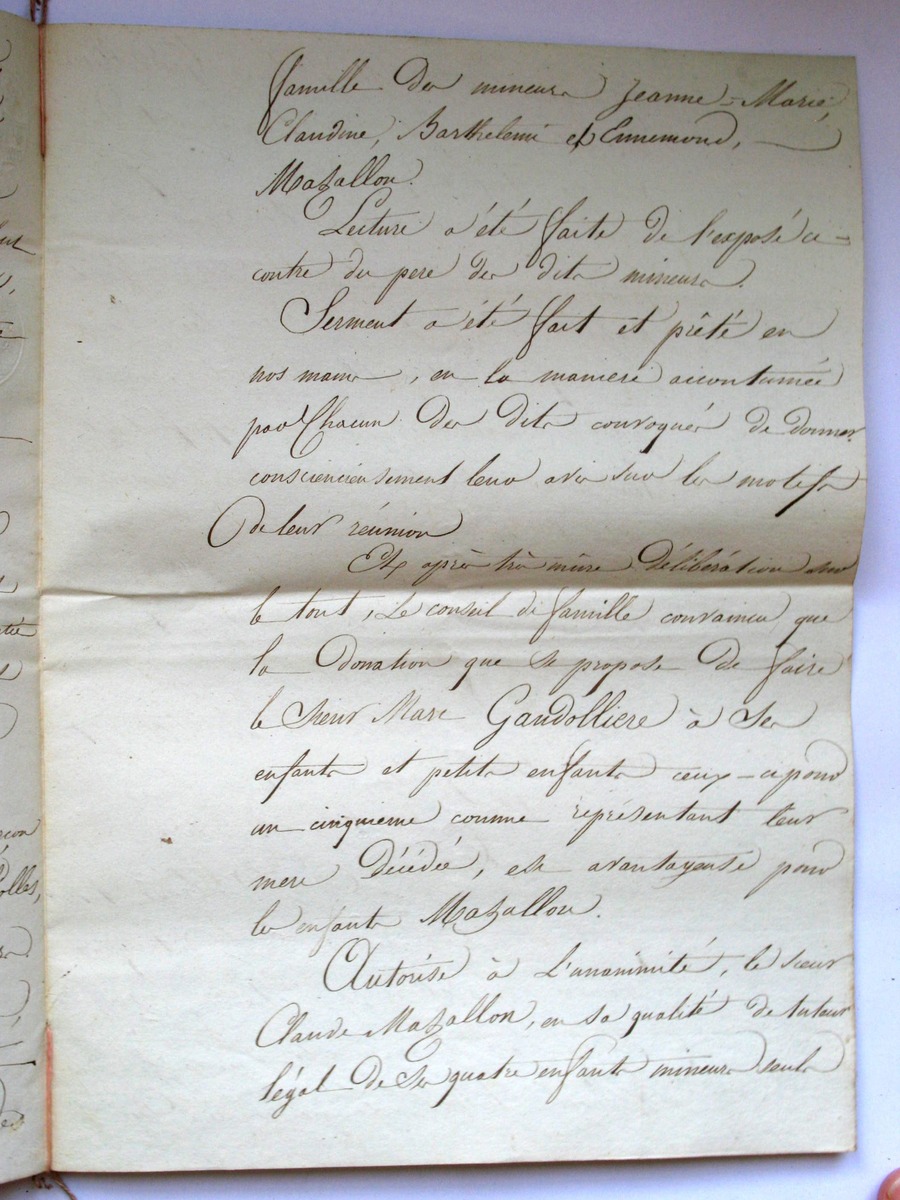 famille des mineurs Jeanne-Marie,
Claudine, Barthelemi et Ennemond,
Mazallon.
Lecture a été faite de l'exposé ci-
contre du pere des dits mineurs.
Serment a été fait et prêté en
nos mains, en la maniere accoutumée
par Chacun des dits convoqués de donner
consciencieusement leur avis sur les motifs
de leur réunion
Et après très mûre délibération sur
le tout, Le conseil de famille convaincu que
la donation que se propose de faire
le sieur Marc Gandolliere à ses
enfants et petits enfants ceux-ci pour
un cinquieme comme représentant leur
mere décédée, est avantageuse pour
les enfants Mazallon.
Autorise à L'unanimité, le sieur
Claude Mazallon, en sa qualité de tuteur
légal de ses quatre enfants mineurs seuls